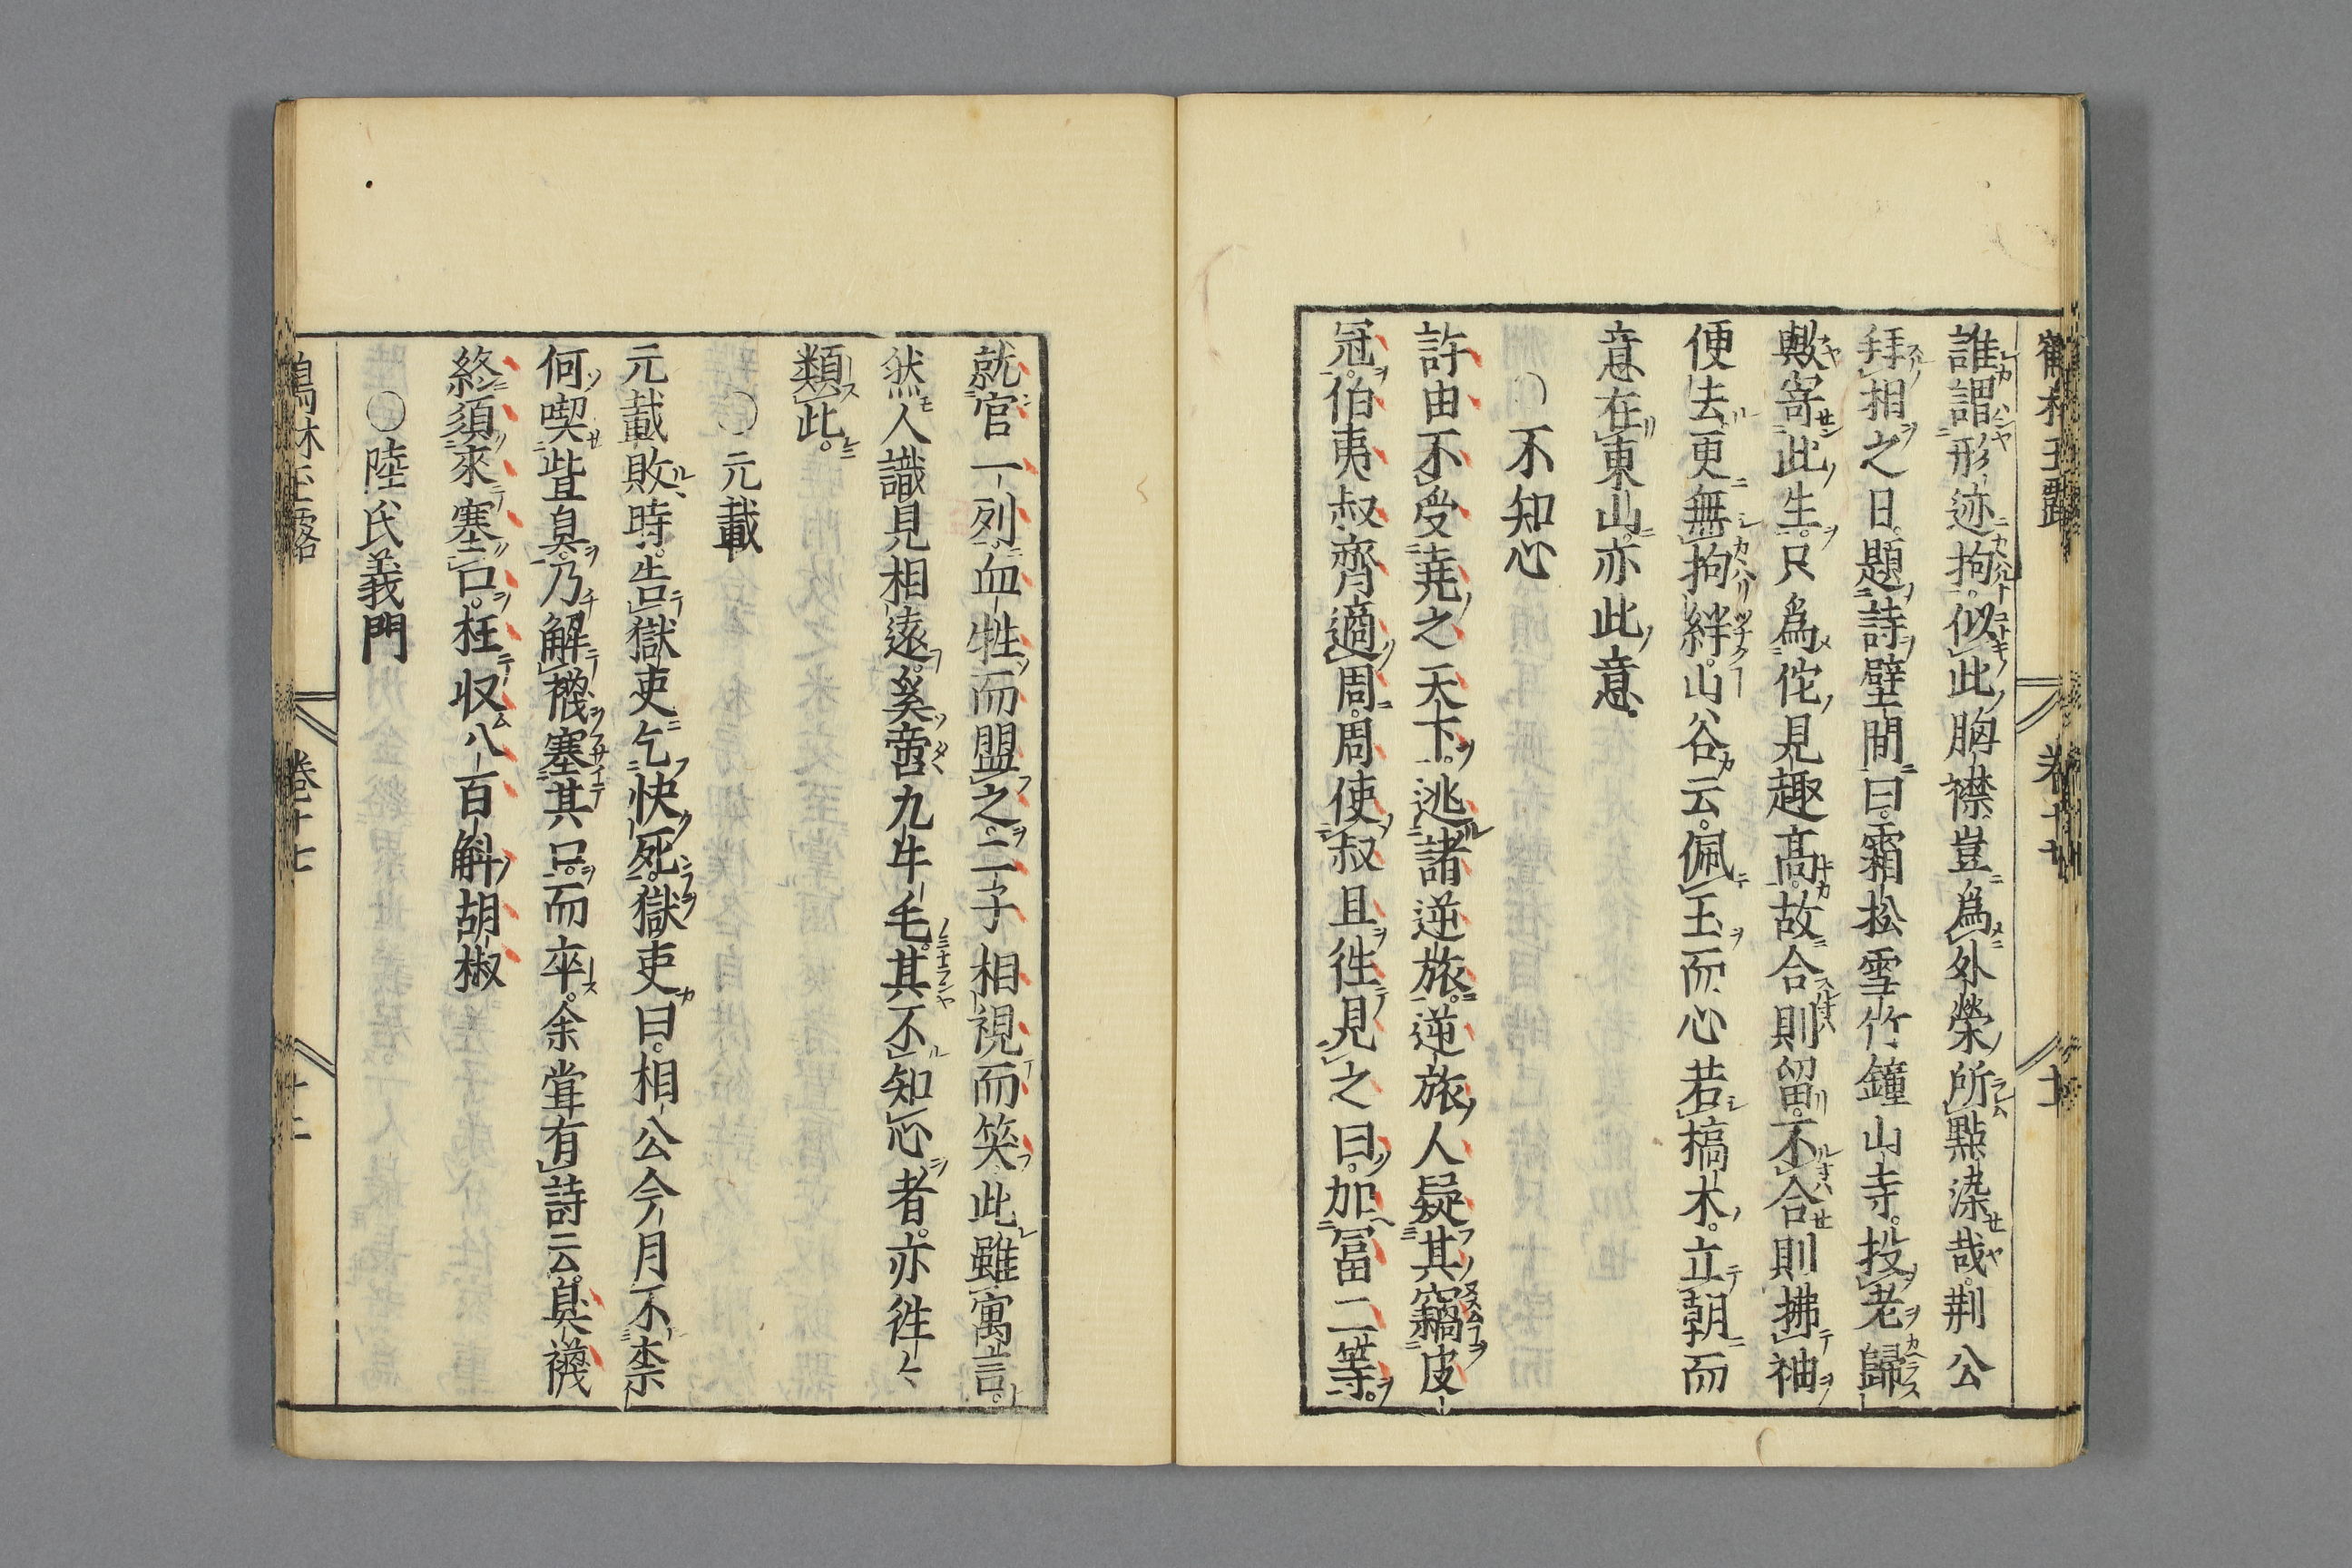 誰謂形迹拘。似此胸襟豈爲外榮所點染哉。荆公
拜相之日。題詩壁間曰。霜松雪竹鐘山寺。投老歸
歟寄此生。只爲佗見趣高。故合則留。不合則拂袖
便去。更無拘絆。山谷云。佩玉而心若槁木。立朝而
意在東山。亦此意。
○不知心
許由不受堯之天下。逃諸逆旅。逆旅人疑其竊皮
冠。伯夷叔齊適周。周使叔且徃見之曰。加富二等。
就官一列。血牲而盟之。二子相視而笑。此雖寓言。
然人識見相遠。奚啻九牛毛。其不知心者。亦徃々
類此。
○元載
元載敗時。告獄吏乞快死。獄吏曰。相公今月不柰
何喫些臭。乃解襪塞其口。而卒。余甞有詩云。臭襪
終須來塞口。枉収八百斛胡椒
○陸氏義門
鶴林玉露
卷十七
十二